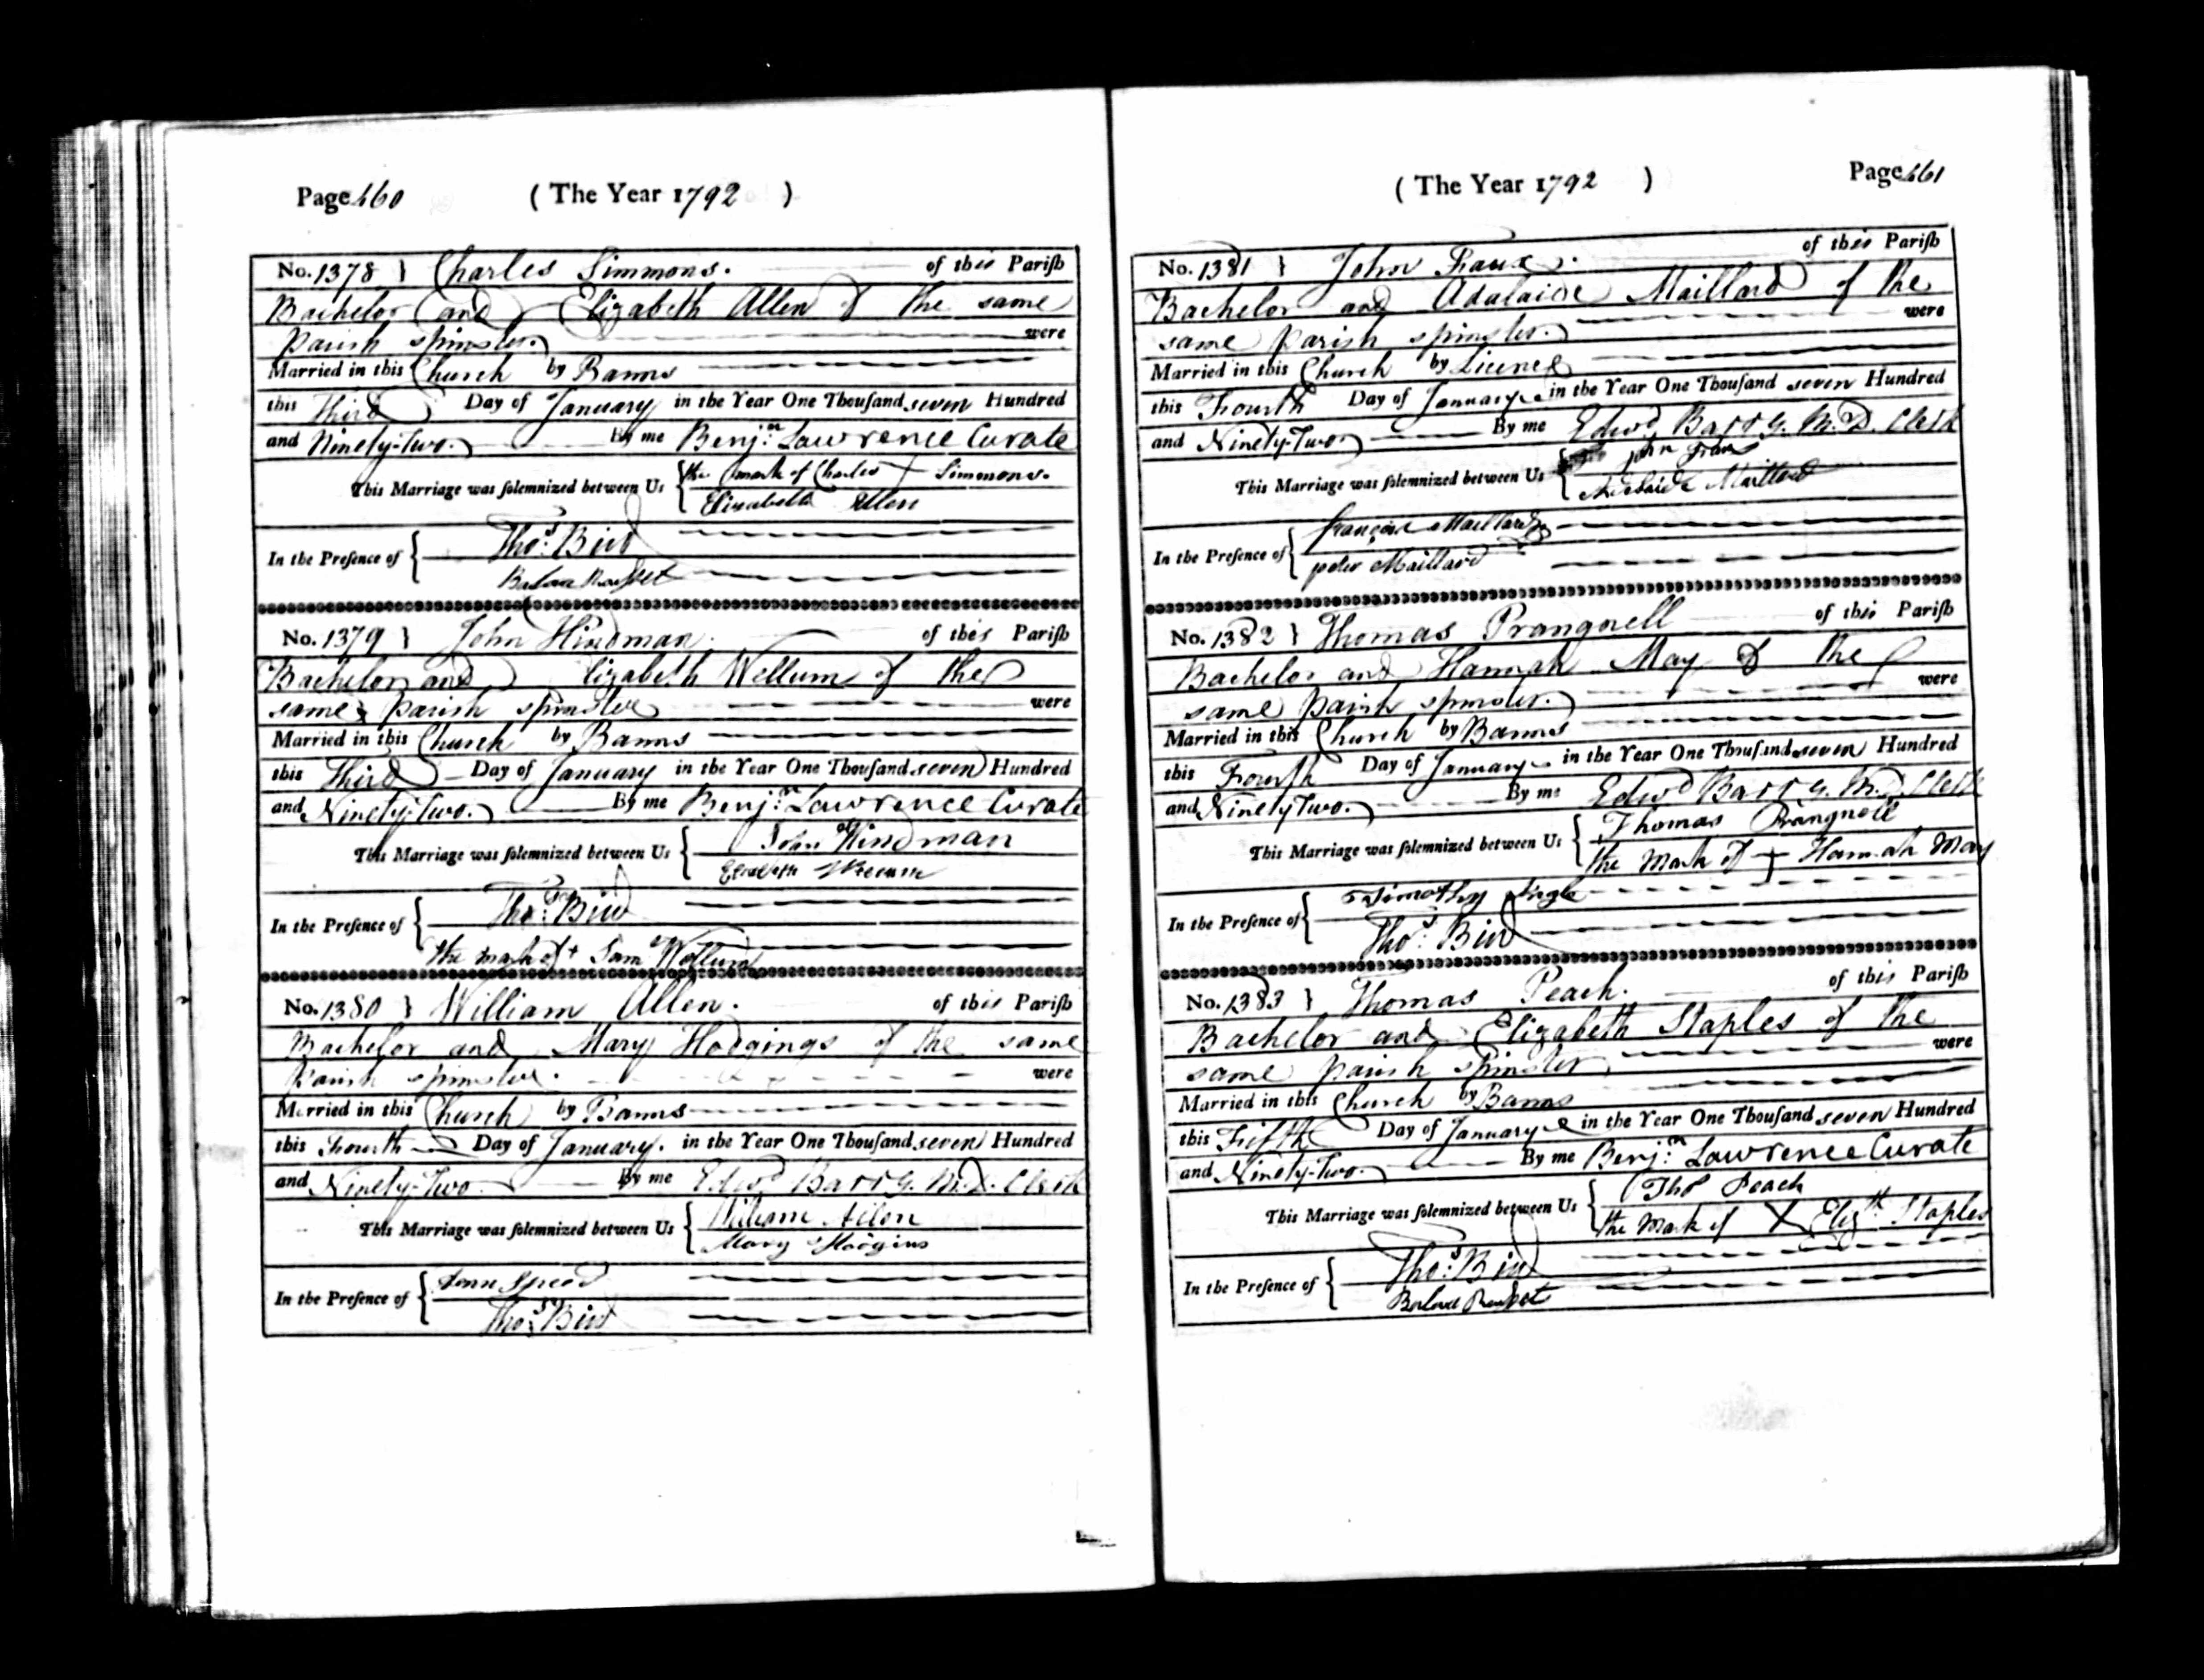 Page 460 ( The Year 1792 )
No. 1378 } Charles Simmons. of this Parish
Bachelor and Elizabeth Allen of the same
Parish spinster. were
Married in this Church by Banns
this Third Day of January in the Year One Thousand seven Hundred
and Ninety-Two. By me Benjn. Lawrence Curate
This Marriage was solemnized between Us { the mark of Charles + Simmons.
Elizabeth Allen
In the Presence of { Thos. Bird
No. 1379 } John Hindman. of this Parish
Bachelor and Elizabeth Wellum of the
same Parish spinster were
Married in this Church by Banns
this Third Day of January in the Year One Thousand seven Hundred
and Ninety-Two. By me Benjn. Lawrence Curate
This Marriage was solemnized between Us { John Hindman
Elizabeth
In the Presence of { Thos. Bird
the mark of + Saml Wellum
No. 1380 } William Allen. of this Parish
Bachelor and Mary Hodgings of the same
Parish spinster. were
Married in this Church by Banns
this Fourth Day of January. in the Year One Thousand seven Hundred
and Ninety-Two. By me Edwd Barry. M.D. Clerk
This Marriage was solemnized between Us { William Allen
Mary Hodgins
In the Presence of {
Thos. Bird
( The Year 1792 ) Page 461
No. 1381 } John Faux. of this Parish
Bachelor and Adalaide Maillard of the
same Parish spinster. were
Married in this Church by Licence
this Fourth Day of January in the Year One Thousand seven Hundred
and Ninety-Two By me Edwd Barry. M.D. Clerk
This Marriage was solemnized between Us { John Faux
Adelaide Maillard
In the Presence of { Maillard
peter Maillard
No. 1382 } Thomas Prangnell of this Parish
Bachelor and Hannah May of the
same Parish spinster. were
Married in this Church by Banns
this Fourth Day of January in the Year One Thousand seven Hundred
and Ninety Two. By me Edwd Barry. M.D. Clerk
This Marriage was solemnized between Us { Thomas Prangnell
the Mark of + Hannah May
In the Presence of { Timothy
Thos. Bird
No. 1383 } Thomas Peach. of this Parish
Bachelor and Elizabeth Staples of the
same Parish Spinster were
Married in this Church by Banns
this Fifth Day of January in the Year One Thousand seven Hundred
and Ninety-Two. By me Benjn. Lawrence Curate
This Marriage was solemnized between Us { Thos Peach
the Mark of X Elizth Staples
In the Presence of { Thos. Bird